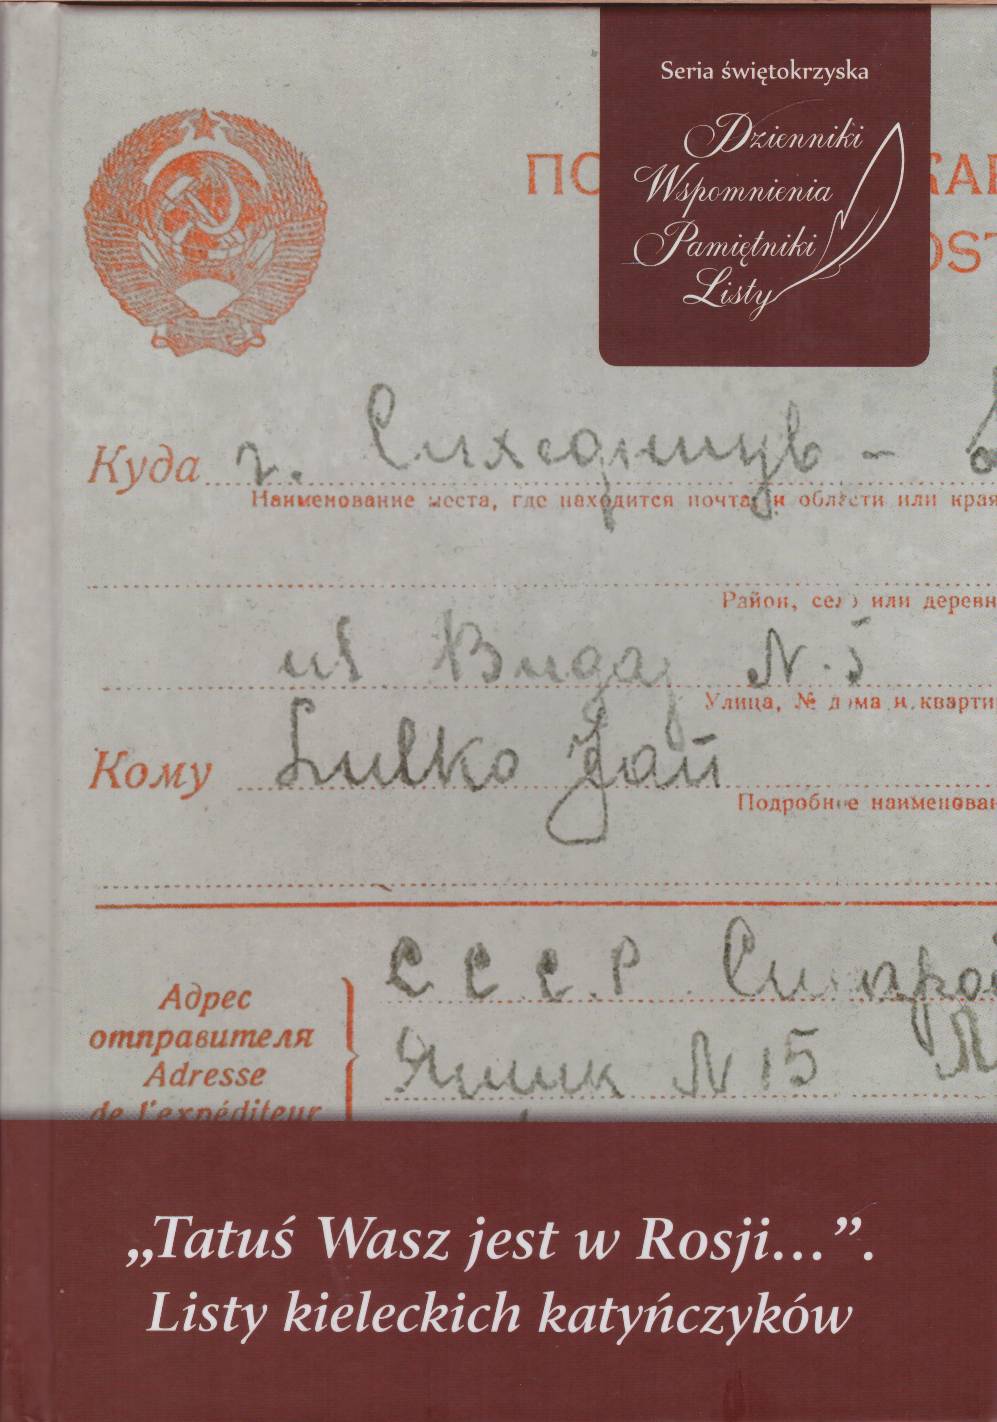 Seria świętokrzyska
Dzienniki
Wspomnienia
Pamiętniki
Listy
ПО
КАР
OST
Куда г. Сихеднюув -
Наименование места, где находится почта, и области или края
Район, село или деревн
ul Видаj N. 5
Улица, № дома и квартир
Кому Lulko Jan
Подробное наименован
С.С.С.Р. Старо
Адрес
отправителя
Adresse
de l'expéditeur
Ящик N 15
„Tatuś Wasz jest w Rosji…”.
Listy kieleckich katyńczyków